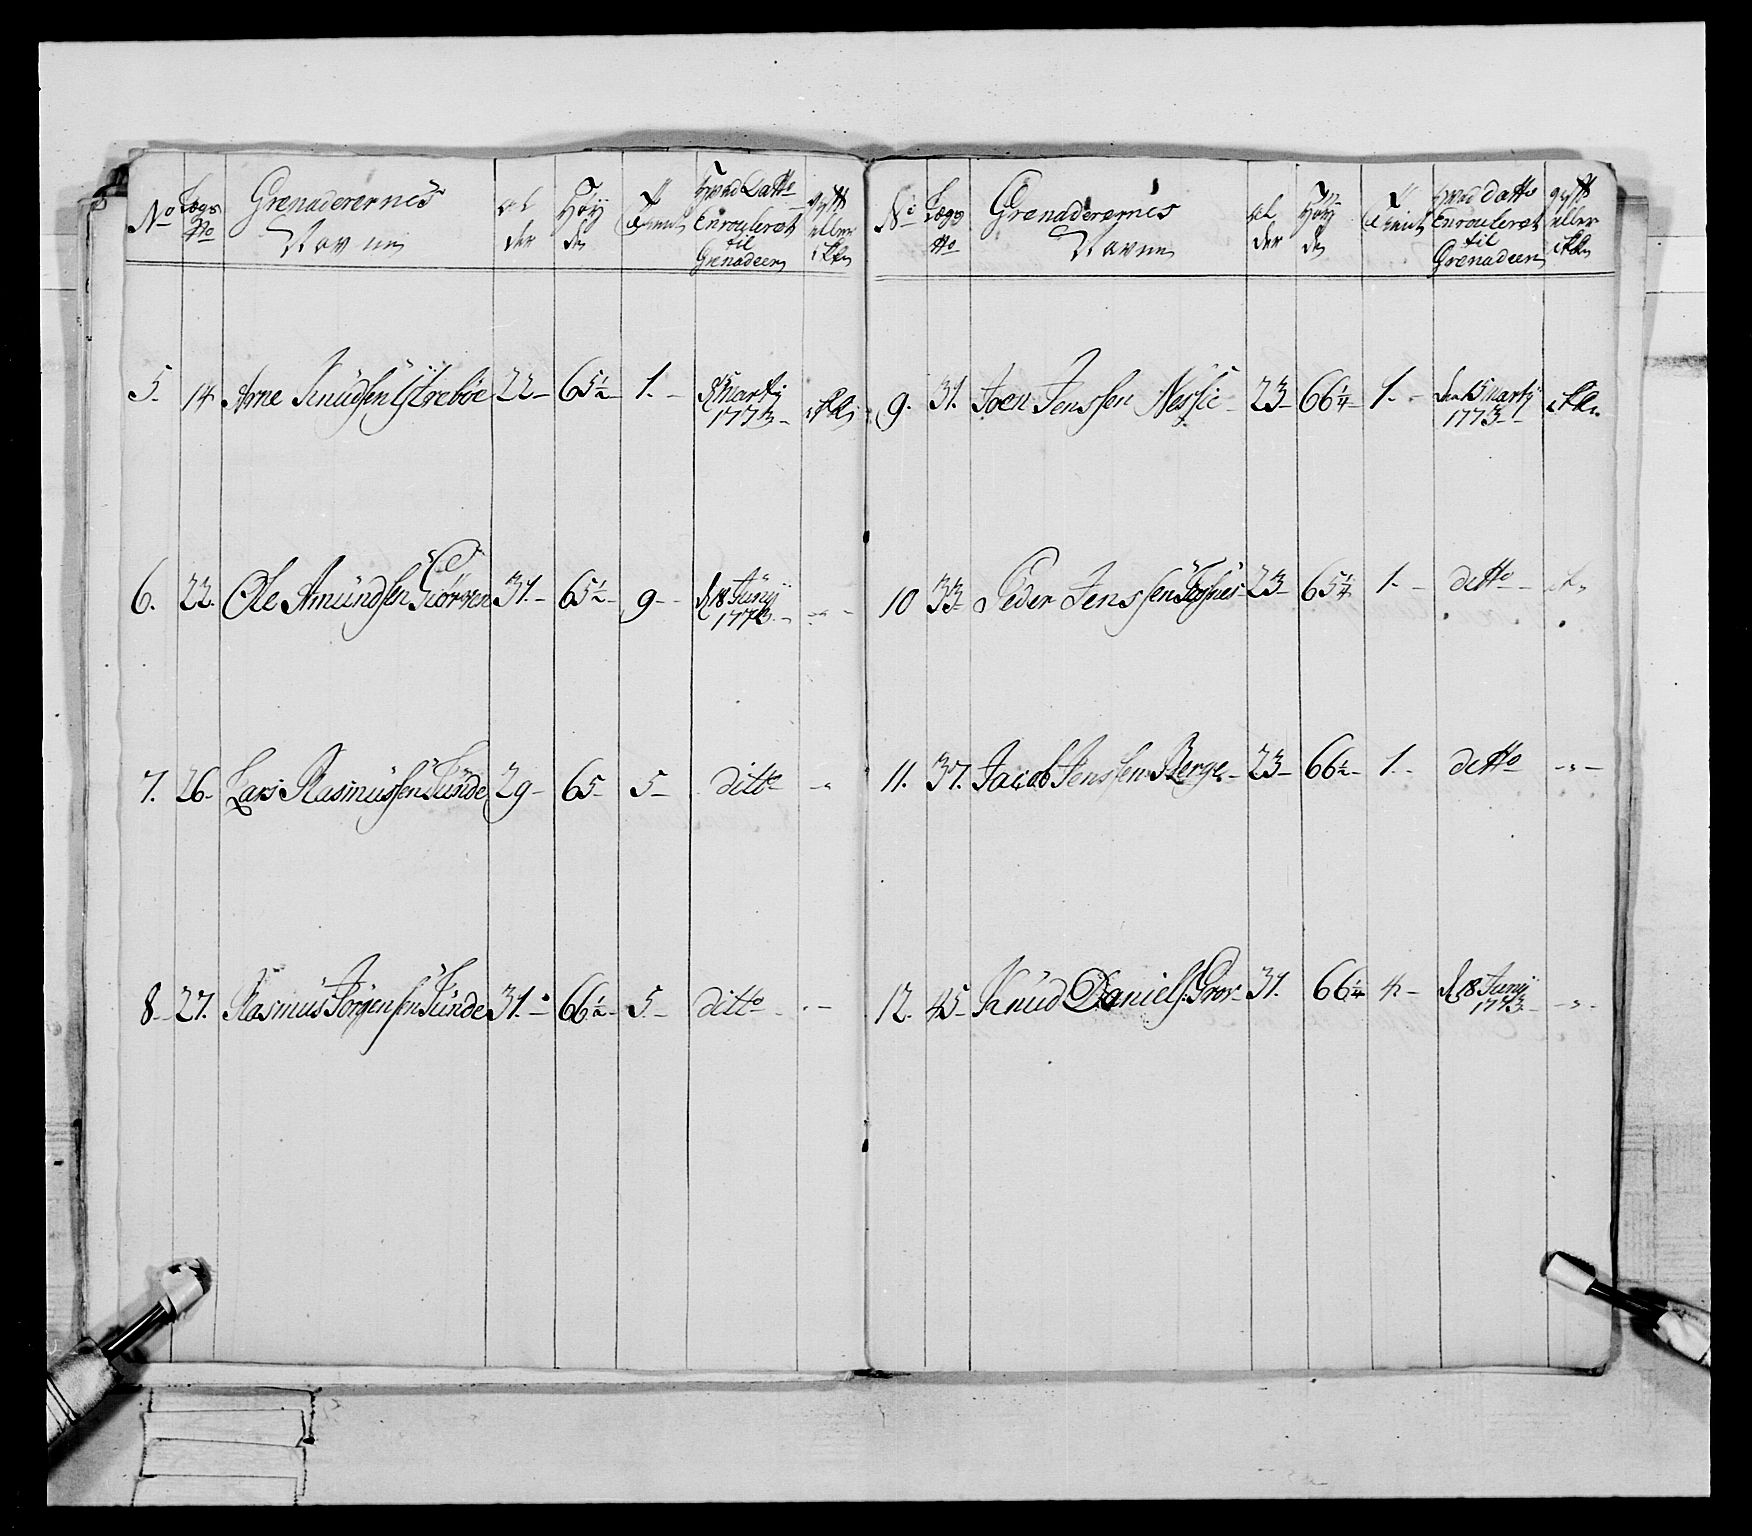 No Legs No Grenaderernes Navne al der Høy den Tienist Hvad Datto Enrouleret til Grenadeer gift eller ikke
5. 14 Arne Knudsen Ystrebøe 22 - 65½ - 1. - d 15 Martij 1773 - ikke
6. 22. Ole Amundsen 31. - 65½ - 9 - d 18 Junij 1773. - " -
7. 26 - Lars Rasmussen Tunde 29 - 65 - 5 - ditto - "
8 - 27. Rasmus Jørgensen Tunde 31. - 66½ - 5. - ditto - " -
No Legs No Grenaderernes Navne al der Høy den Tienist Hvad datto Enrouleret til Grenadeer gift eller ikke
9. 31. Joen Jenssen 23 - 66¼ - 1. - den 15 Martij 1773 - ikke
10 33 - Peder Jenssen 23 - 65¼ 1. - ditto - ik
11. 37. Jacob Jenssen Berge - 23 - 66½ - 1. - ditto - " -
12. 45 - Knud Daniels. Gror - 31. 66¼ 4 - d 18 Junij 1773. - " -